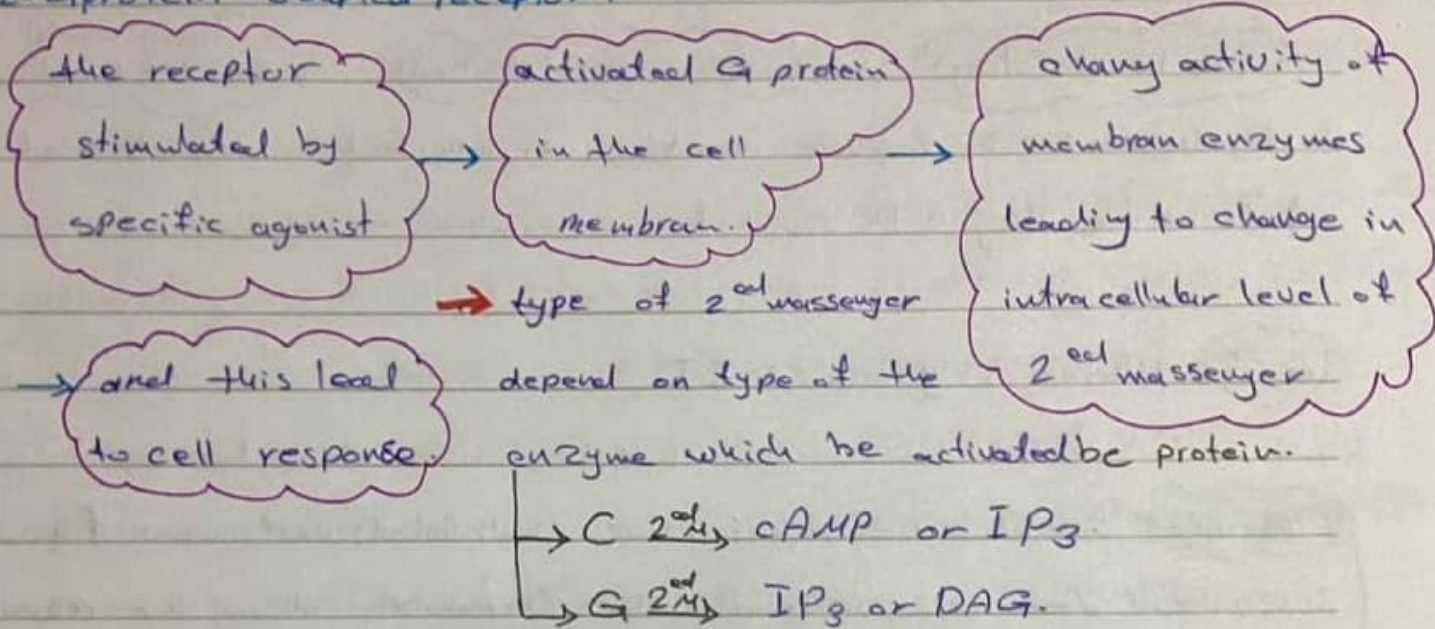 protein coupled receptor.
the receptor
stimulated by
specific agonist
→ activated G protein
in the cell
membran.
→ chang activity of
membran enzymes
leading to change in
intracellular level of
2 ed massenger
→ and this lead
to cell response.
→ type of 2 ed massenger
depend on type of the
enzyme which be activated be protein.
→ C 2 ed M → cAMP or IP3.
→ G 2 ed M → IP3 or DAG.